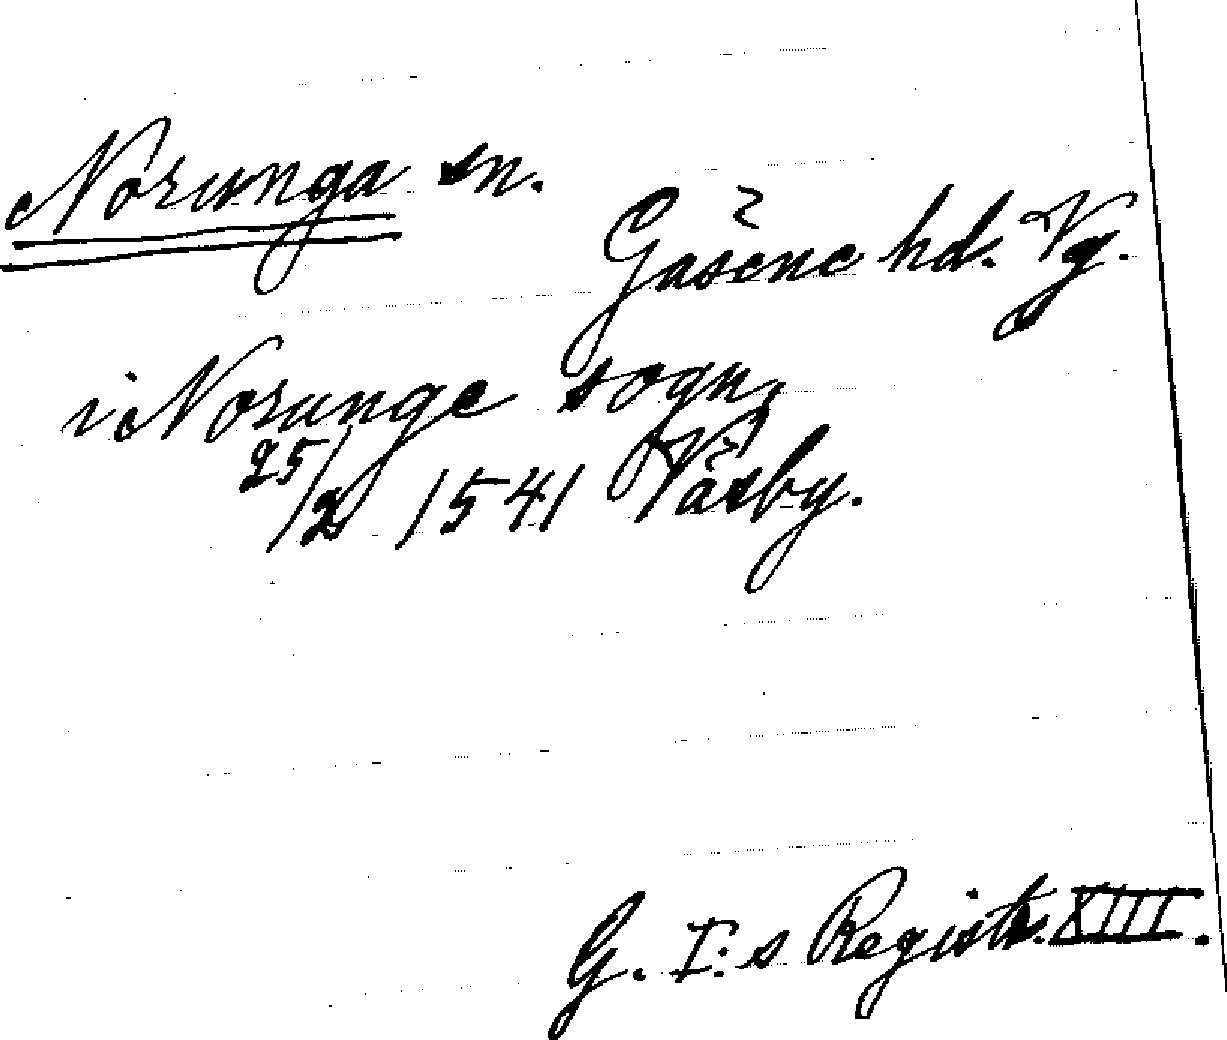 Norunga sn.
Gäsene hd. Vg.
i Norunge sogn,
25/2 1541 Väsby.
G. I:s Registr. XIII.